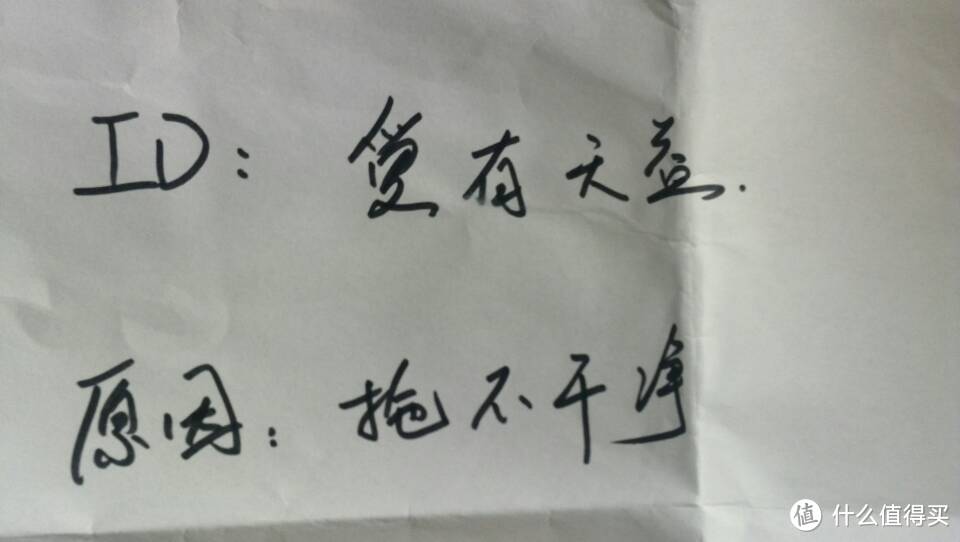 ID: 爱有天益.
原因: 拖不干净
值 什么值得买